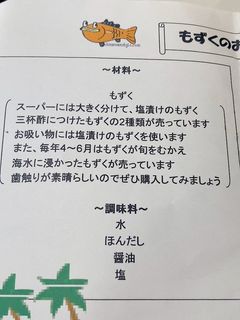 もずくのお
～材料～
もずく
スーパーには大きく分けて、塩漬けのもずく
三杯酢につけたもずくの2種類が売っています
お吸い物には塩漬けのもずくを使います
また、毎年4～6月はもずくが旬をむかえ
海水に浸かったもずくが売っています
歯触りが素晴らしいのでぜひ購入してみましょう
～調味料～
水
ほんだし
醤油
塩